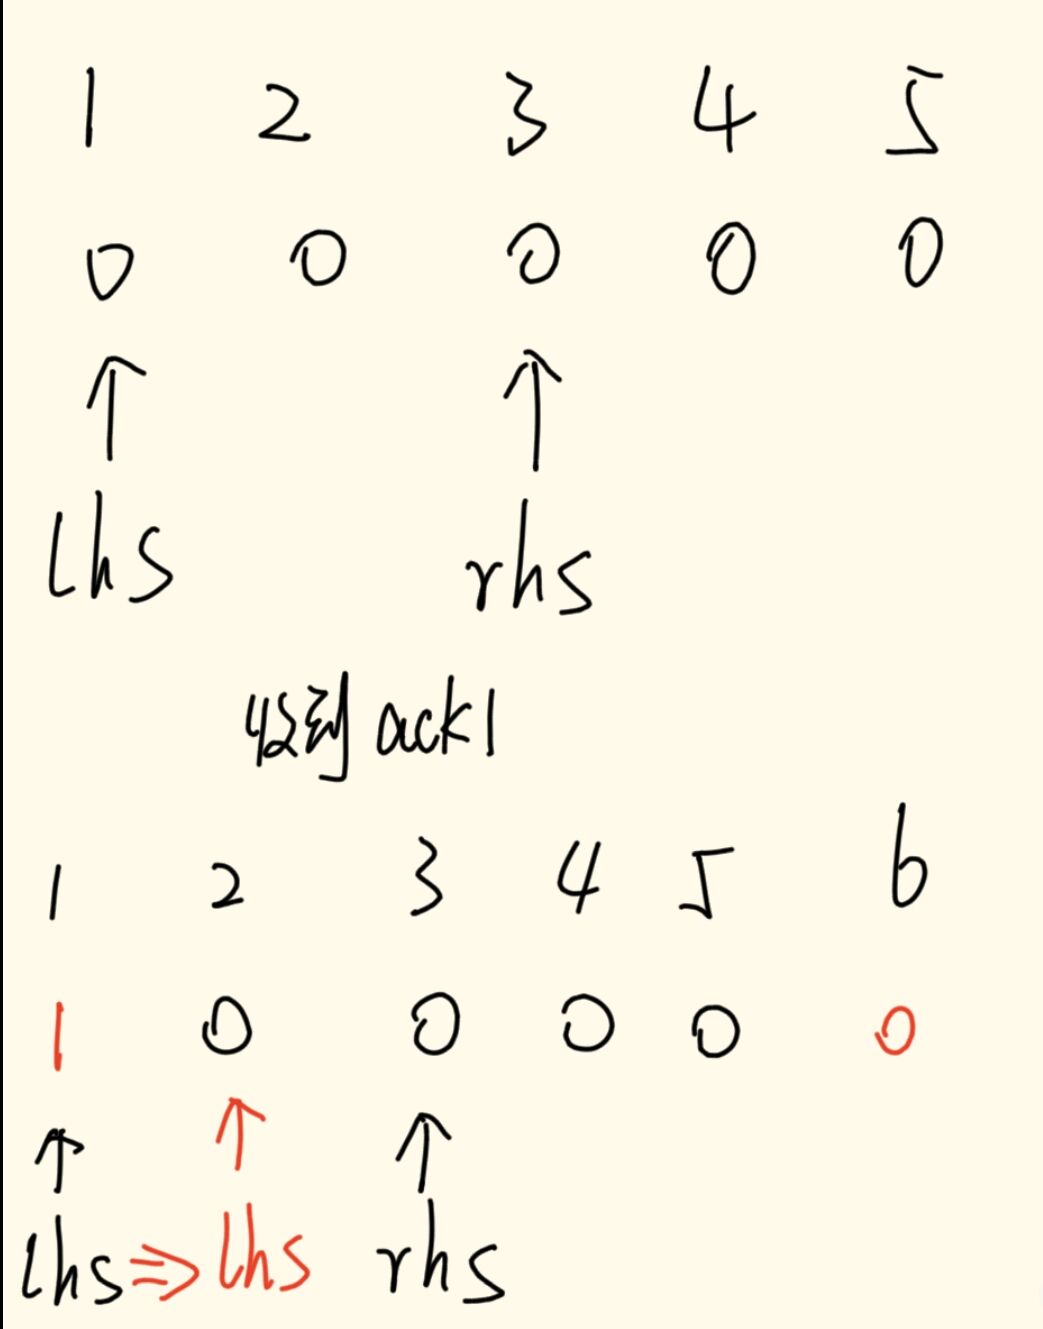 1 2 3 4 5
0 0 0 0 0
lhs rhs
收到 ack1
1 2 3 4 5 6
1 0 0 0 0 0
lhs ⇒ lhs rhs